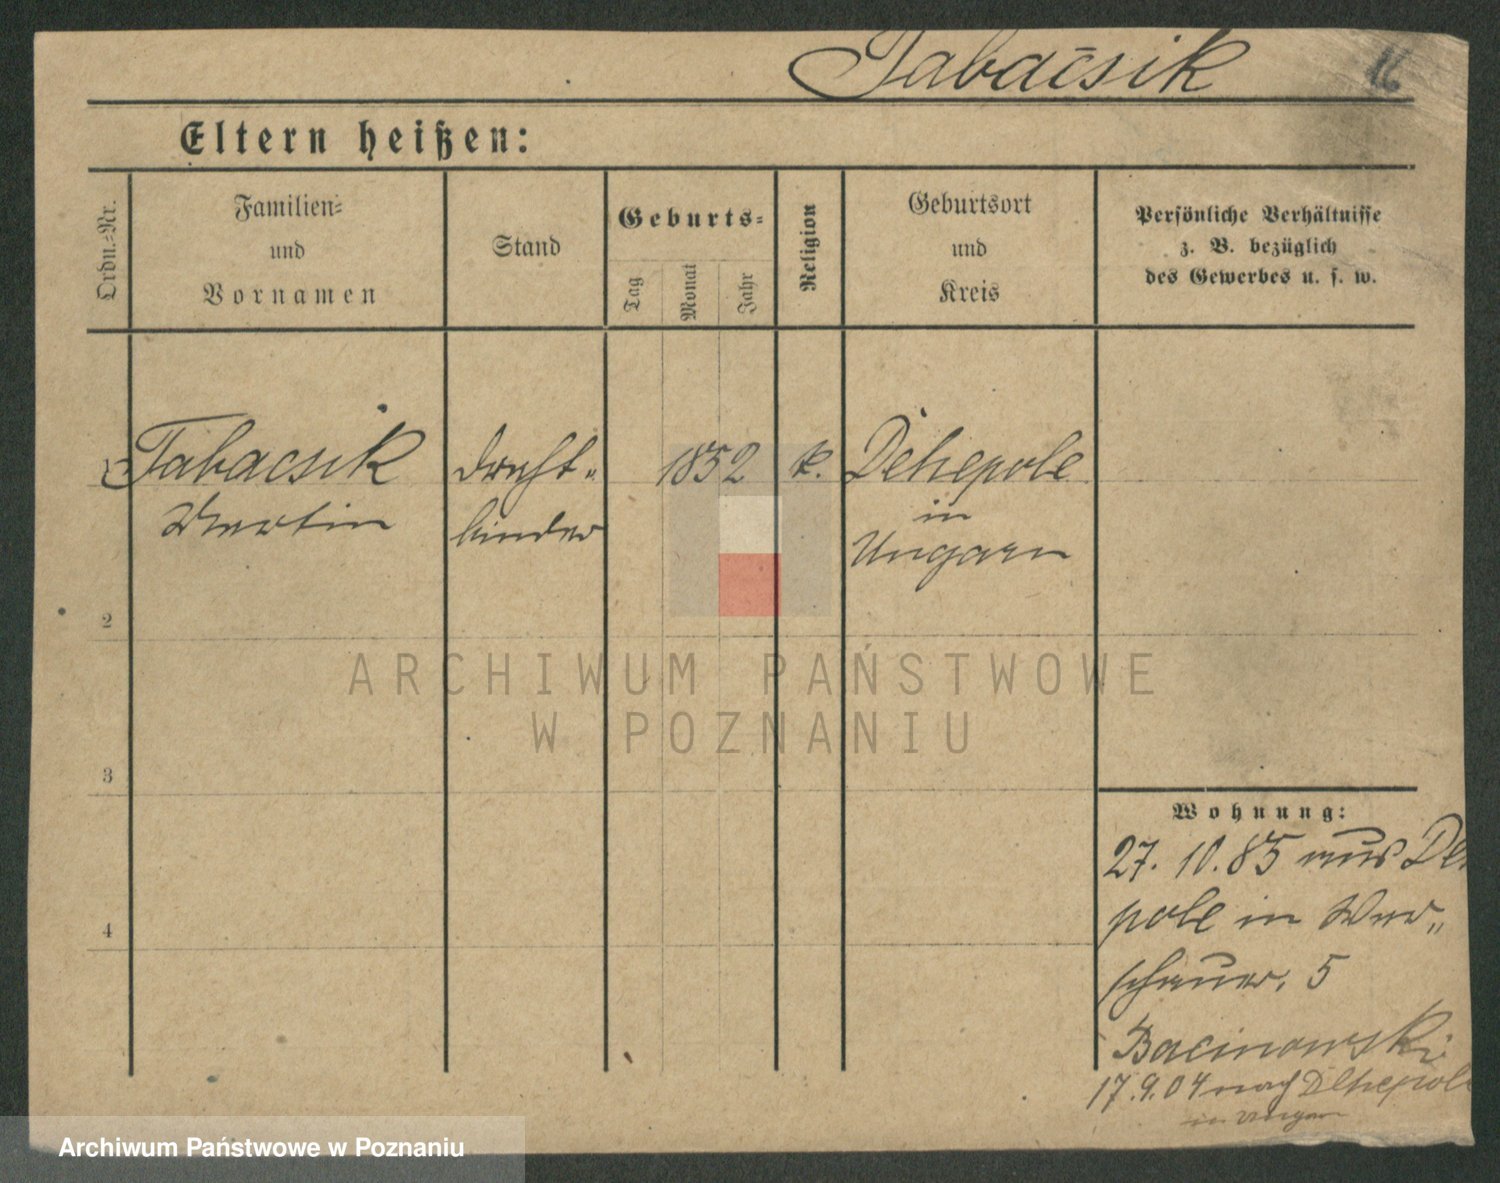 Tabacsik 16
Eltern heißen:
Ordn.=Nr.
Familien=
und
Vornamen
Stand
Geburts=
Tag
Monat
Jahr
Religion
Geburtsort
und
Kreis
Persönliche Verhältnisse
z. B. bezüglich
des Gewerbes u. s. w.
1 Tabacsik Draht- 1852 k. Dlhepole
Martin binder in
Ungarn
2
3
4
Wohnung:
27. 10. 85 aus Dl
pole in War-
schauer. 5
Bacinowski
17.9.04 nach Dlhepole
in Ungarn
ARCHIWUM PAŃSTWOWE
W POZNANIU
Archiwum Państwowe w Poznaniu